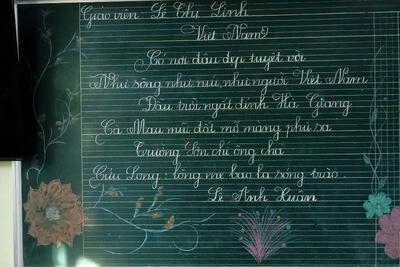 Giáo viên Lê Thị Linh
Việt Nam
Có nơi đâu đẹp tuyệt vời
Như sông như núi, như người Việt Nam
Đầu trời ngất đỉnh Hà Giang
Cà Mau mũi đất mỡ màng phù sa
Trường Sơn chí ông cha
Cửu Long : lòng mẹ bao la sóng trào
Lê Anh Xuân